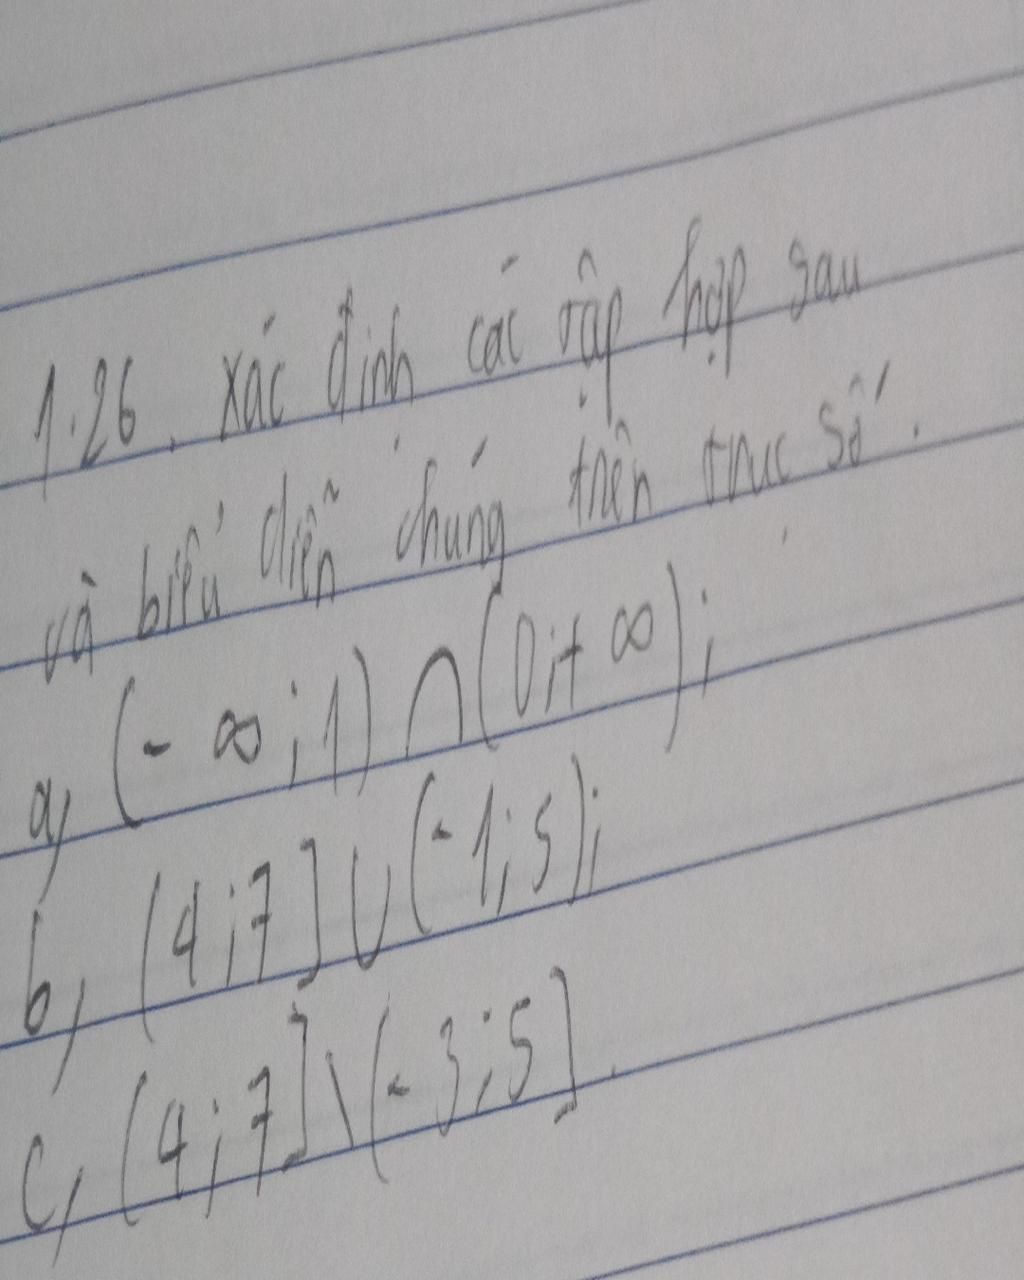 1.26. xác định các tập hợp sau
và biểu diễn chúng trên trục số.
a, (- ∞ ; 1) ∩ (0 ; + ∞) ;
b, (4 ; 7] ∪ (-1 ; 5) ;
c, (4 ; 7] \ (-3 ; 5].